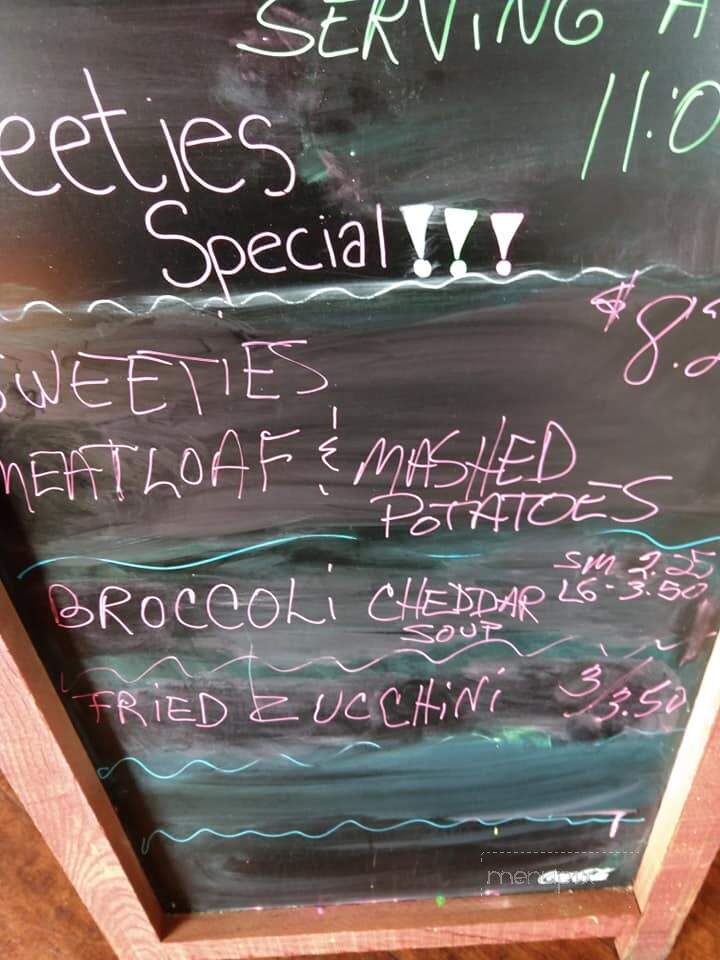 SERVING
11:0
eeties
Special!!!
SWEETIES $8.2
MEATLOAF & MASHED
POTATOES
BROCCOLI CHEDDAR SM 2.25
SOUP LG-3.50
FRIED ZUCCHINI 3/3.50
menupix